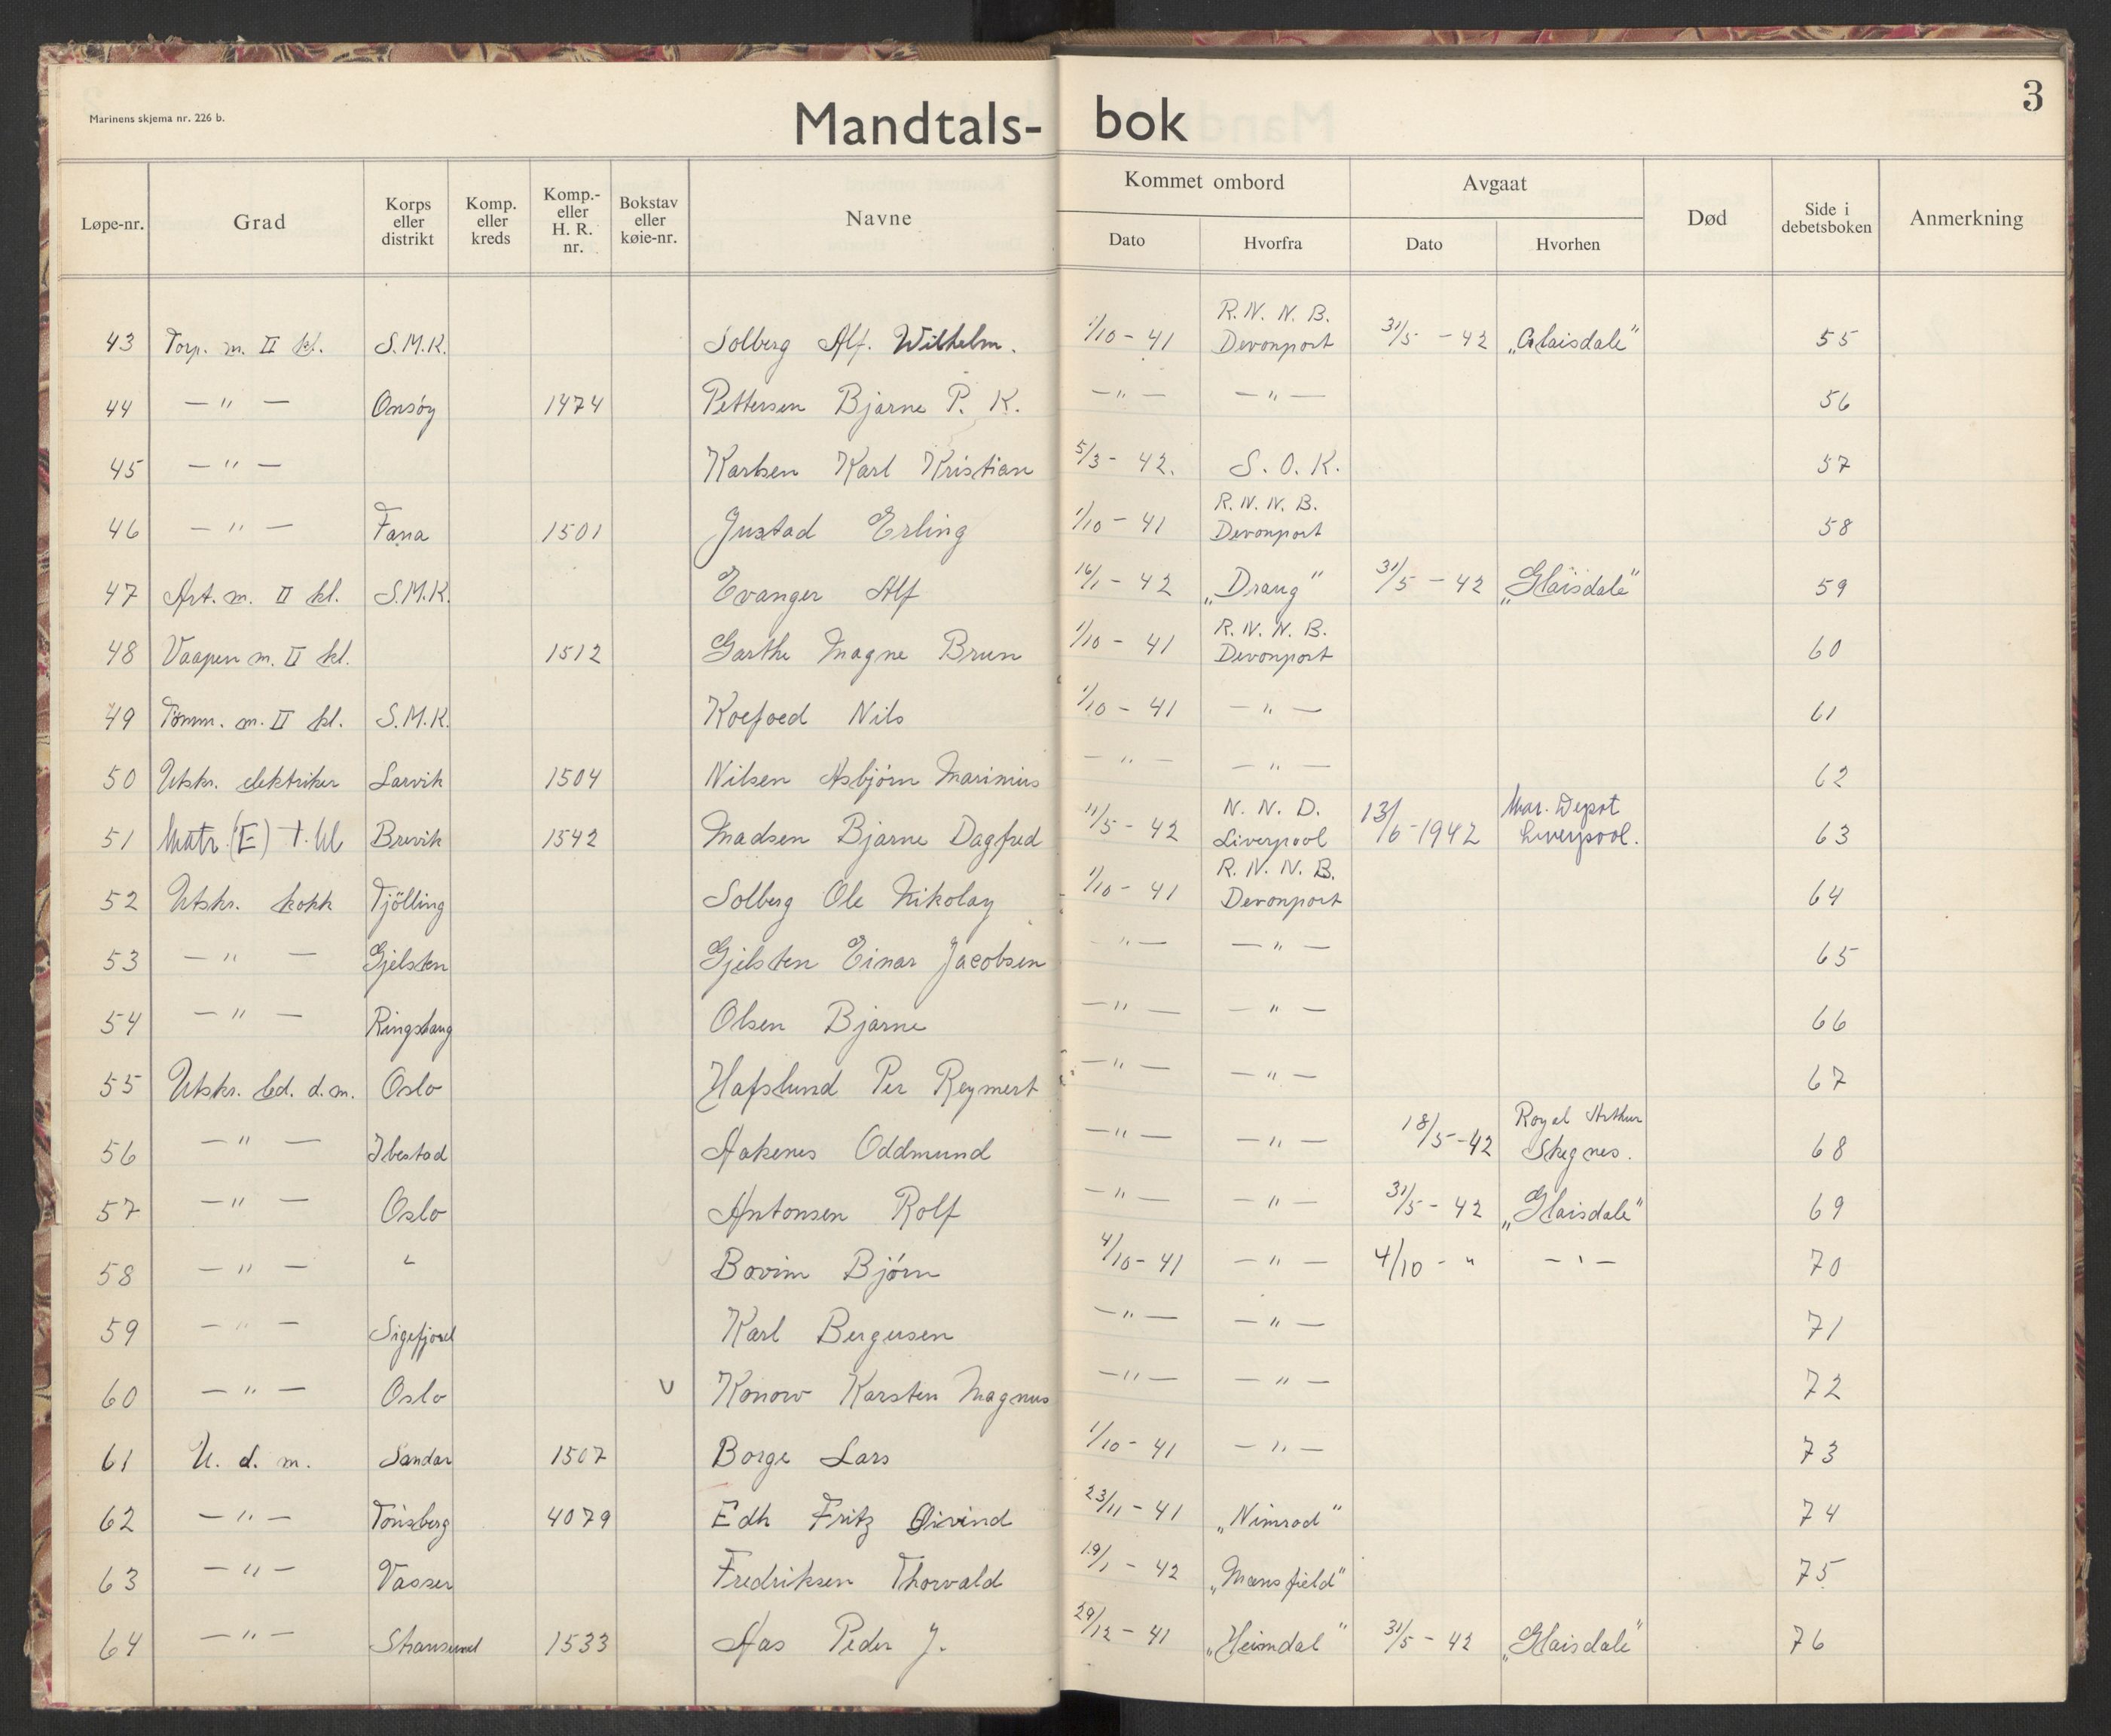 Marinens skjema nr. 226 b.
Mandtals-bok
3
Løpe-nr. Grad Korps eller distrikt Komp. eller kreds Komp.- eller H. R. nr. Bokstav eller køie-nr. Navne Kommet ombord Dato Hvorfra Avgaat Dato Hvorhen Død Side i debetsboken Anmerkning
43 Torp. m. II kl. S.M.K. Solberg Alf. Wilhelm. 1/10 - 41 R. N. N. B. Devonport 31/5 - 42 „Glaisdale" 55
44 — " — Onsöy 1474 Pettersen Bjarne P. K. — " — — " — 56
45 — " — Karlsen Karl Kristian 5/3 - 42. S. O. K. 57
46 — " — Fana 1501 Justad Erling 1/10 - 41 R. N. N. B. Devonport 58
47 Art. m. II kl. S.M.K. Evanger Alf 16/1 - 42 „Draug" 31/5 - 42 „Glaisdale" 59
48 Vaapen m. II kl. 1512 Garthe Magne Brun 1/10 - 41 R. N. N. B. Devonport 60
49 Tömm. m. II kl. S.M.K. Koefoed Nils 1/10 - 41 — " — 61
50 Utskr. elektriker Larvik 1504 Nilsen Asbjörn Marinius — " — — " — 62
51 Matr. (E) 1. kl Brevik 1542 Madsen Bjarne Dagfred 11/5 - 42 N. N. D. Liverpool 13/6 - 1942 Mar. Depot Liverpool. 63
52 Utskr. kokk Tjölling Solberg Ole Nikolay 1/10 - 41 R. N. N. B. Devonport 64
53 — " — Gjelsten Gjelsten Einar Jacobsen — " — — " — 65
54 — " — Ringshaug Olsen Bjarne — " — — " — 66
55 Utskr. bd. d.m. Oslo Hafslund Per Reymert — " — — " — 67
56 — " — Ibestad Aakenes Oddmund — " — — " — 18/5 - 42 Royal Arthur Skegnes. 68
57 — " — Oslo Antonsen Rolf — " — — " — 31/5 - 42 „Glaisdale" 69
58 — " — " Bovim Björn 4/10 - 41 — " — 4/10 - " — " — 70
59 — " — Sigefjord Karl Bergersen — " — — " — 71
60 — " — Oslo v Konow Karsten Magnus — " — — " — 72
61 U. d. m. Sandar 1507 Borge Lars 1/10 - 41 — " — 73
62 — " — Tönsberg 4079 Edh Fritz Øivind 23/11 - 41 „Nimrod" 74
63 — " — Vasser Fredriksen Thorvald 19/1 - 42 „Mansfield" 75
64 — " — 1533 Aas Peder J. 29/12 - 41 „Heimdal" 31/5 - 42 „Glaisdale" 76